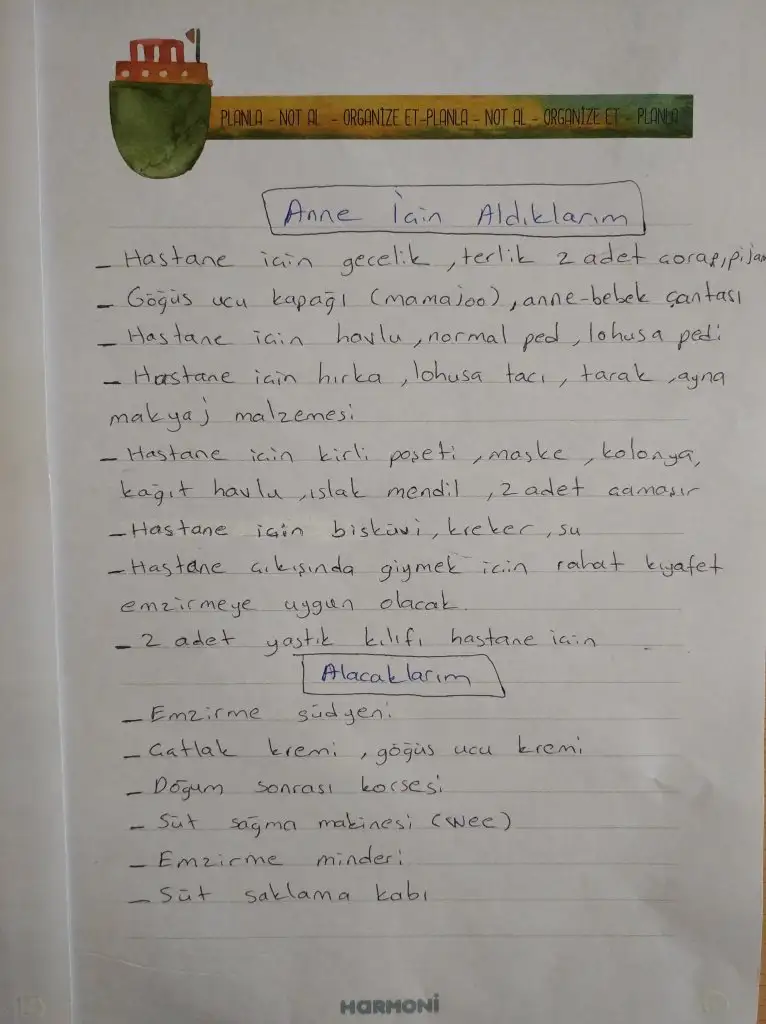 PLANLA - NOT AL - ORGANİZE ET-PLANLA - NOT AL - ORGANİZE ET - PLANLA
Anne İçin Aldıklarım
- Hastane için gecelik, terlik 2 adet çorap, pijam
- Göğüs ucu kapağı (mamajoo), anne-bebek çantası
- Hastane için havlu, normal ped, lohusa pedi
- Hastane için hırka, lohusa tacı, tarak, ayna
makyaj malzemesi
- Hastane için kirli poşeti, maske, kolonya,
kağıt havlu, ıslak mendil, 2 adet çamaşır
- Hastane için bisküvi, kreker, su
- Hastane çıkışında giymek için rahat kıyafet
emzirmeye uygun olacak.
- 2 adet yastık kılıfı hastane için
Alacaklarım
- Emzirme südyeni
- Çatlak kremi, göğüs ucu kremi
- Doğum sonrası korsesi
- Süt sağma makinesi (wee)
- Emzirme minderi
- Süt saklama kabı
HARMONİ